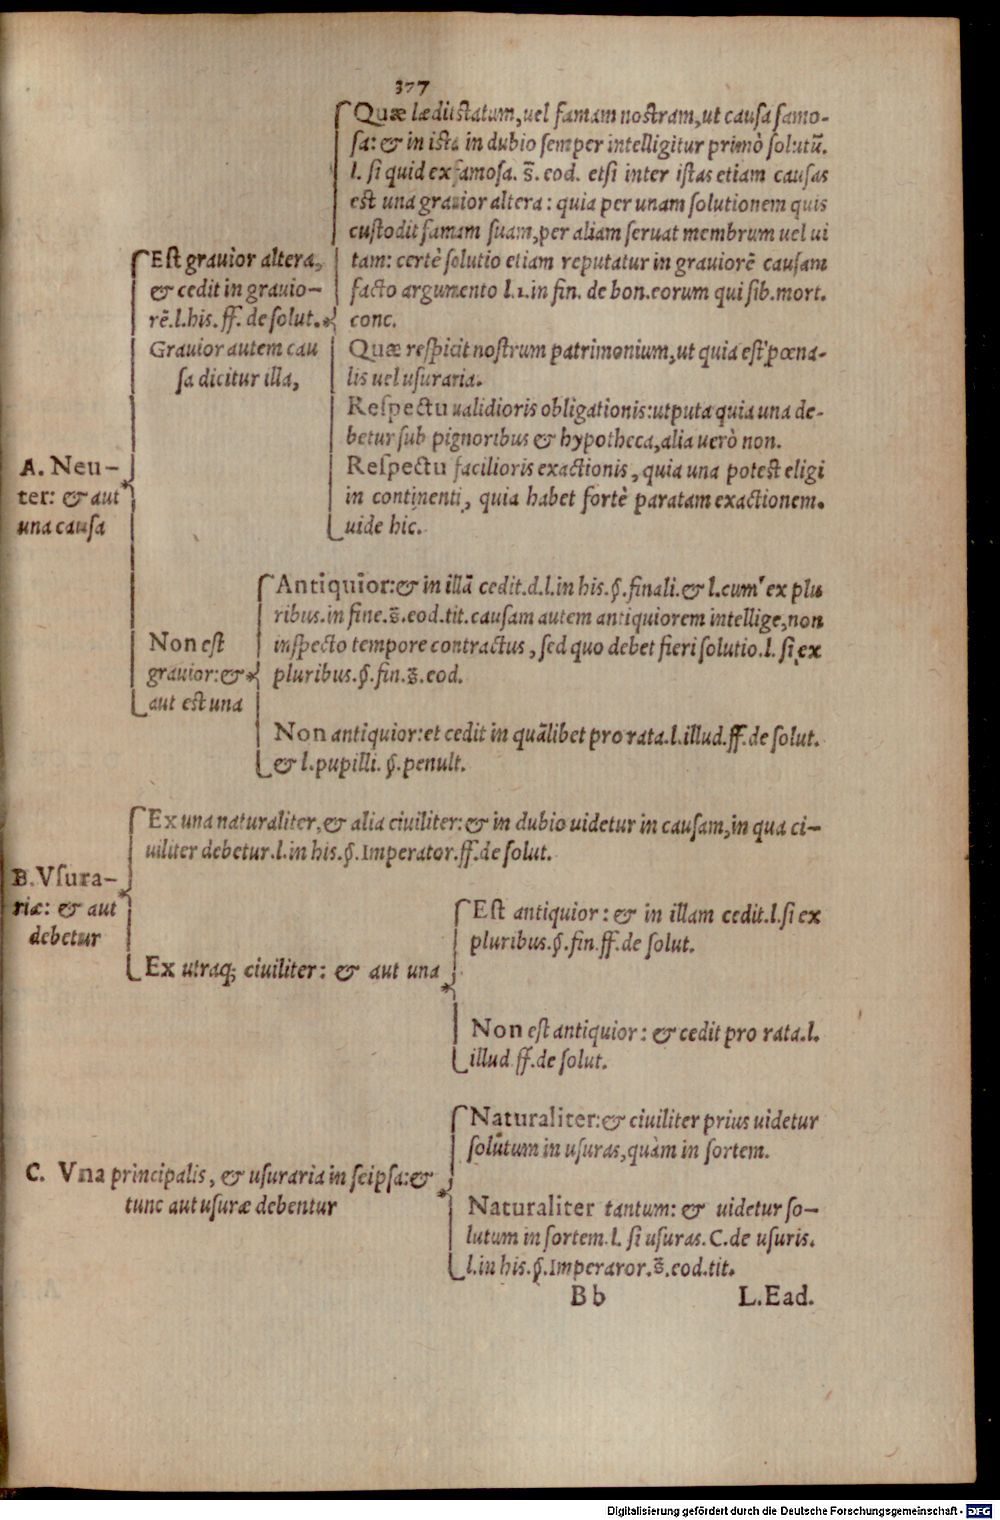 377
Quæ lædit statum, uel famam nostram, ut causa famo-
sa: & in ista in dubio semper intelligitur primò solutũ.
l. si quid ex famosa. s̃. eod. etsi inter istas etiam causas
est una grauior altera: quia per unam solutionem quis
custodit famam suam, per aliam seruat membrum uel ui
tam: certè solutio etiam reputatur in grauiorẽ causam
facto argumento l.1.in fin. de bon.eorum qui sib.mort.
conc.
Est grauior altera,
& cedit in grauio-
rẽ.l.his.ff. de solut.
Grauior autem cau
sa dicitur illa,
Quæ respicit nostrum patrimonium, ut quia est pœna-
lis uel usuraria.
Respectu ualidioris obligationis: utputa quia una de-
betur sub pignoribus & hypotheca, alia uerò non.
Respectu facilioris exactionis, quia una potest eligi
in continenti, quia habet fortè paratam exactionem.
uide hic.
A. Neu-
ter: & aut
una causa
Antiquior: & in illã cedit.d.l.in his.§.finali.& l.cum ex plu
ribus.in fine.s̃.eod.tit.causam autem antiquiorem intellige, non
inspecto tempore contractus, sed quo debet fieri solutio.l. si ex
pluribus.§.fin.s̃.eod.
Non est
grauior: &
aut est una
Non antiquior: et cedit in quãlibet pro rata.l.illud.ff.de solut.
& l.pupilli. §.penult.
Ex una naturaliter, & alia ciuiliter: & in dubio uidetur in causam, in qua ci-
uiliter debetur.l.in his.§.Imperator.ff.de solut.
B. Vsura-
riæ: & aut
debetur
Est antiquior: & in illam cedit.l.si ex
pluribus.§.fin.ff.de solut.
Ex utraq; ciuiliter: & aut una
Non est antiquior: & cedit pro rata.l.
illud.ff.de solut.
Naturaliter: & ciuiliter prius uidetur
solutum in usuras, quàm in sortem.
C. Vna principalis, & usuraria in seipsa: &
tunc aut usuræ debentur
Naturaliter tantum: & uidetur so-
lutum in sortem.l. si usuras.C.de usuris.
l.in his.§.Imperaror.s̃.eod.tit.
B b L.Ead.
Digitalisierung gefördert durch die Deutsche Forschungsgemeinschaft - DFG